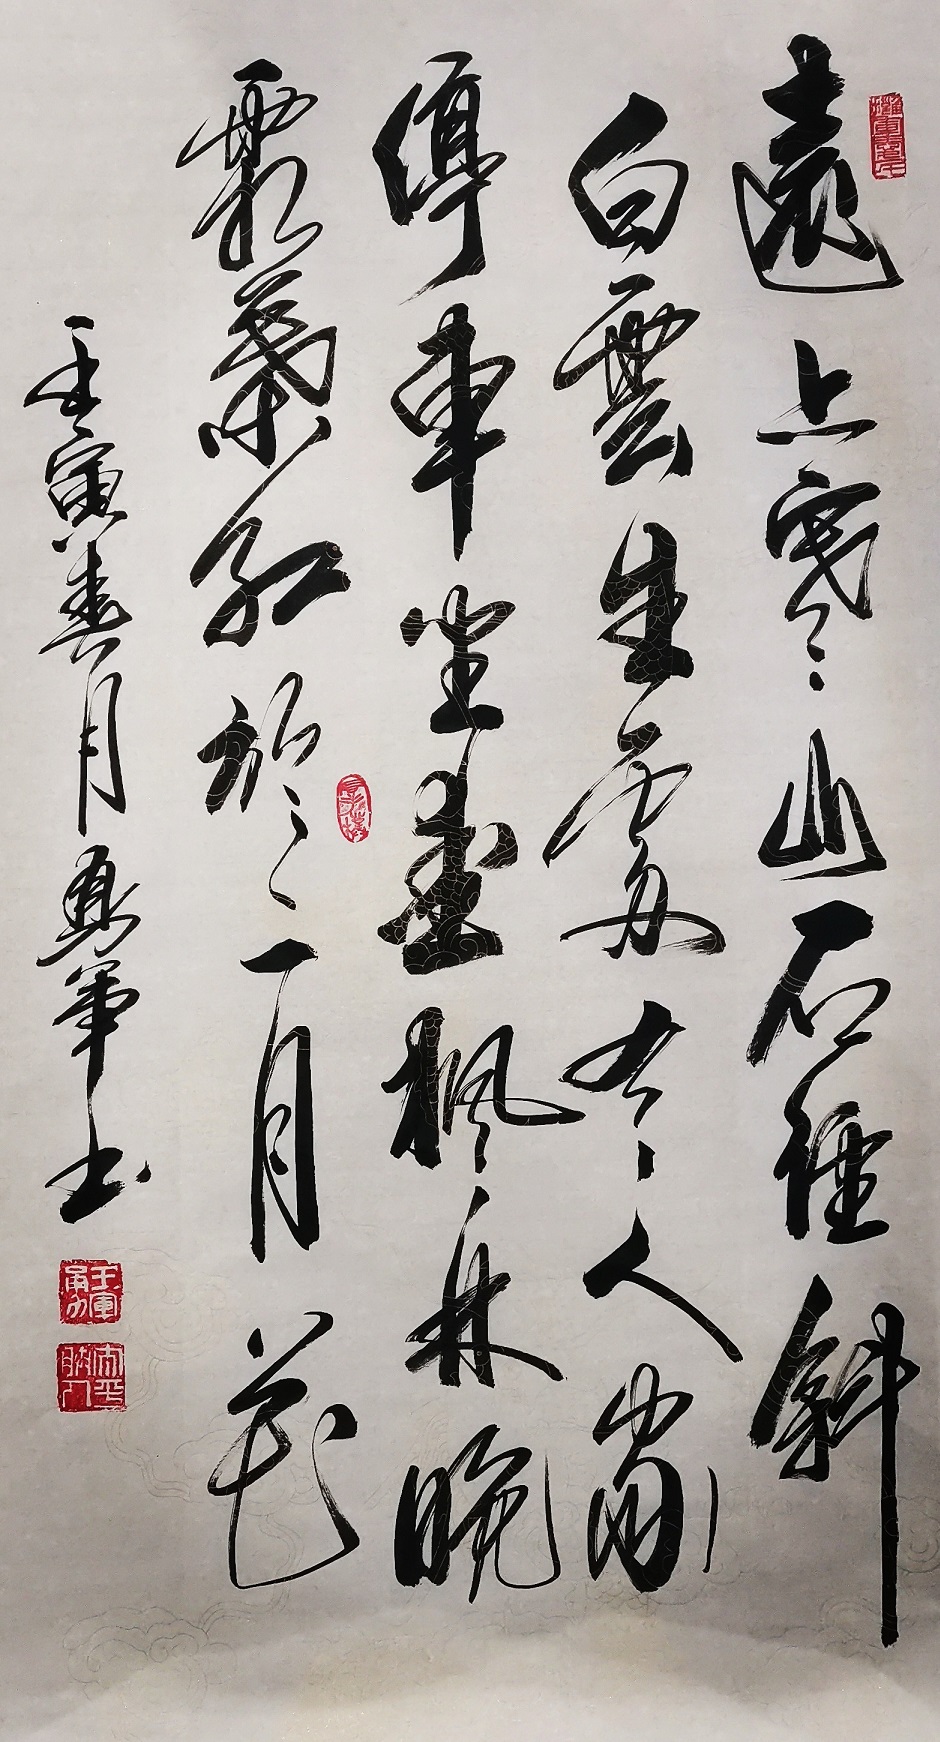 遠上寒山石徑斜
白雲生處有人家
停車坐愛楓林晚
霜葉紅於二月花
壬寅春月勇軍书